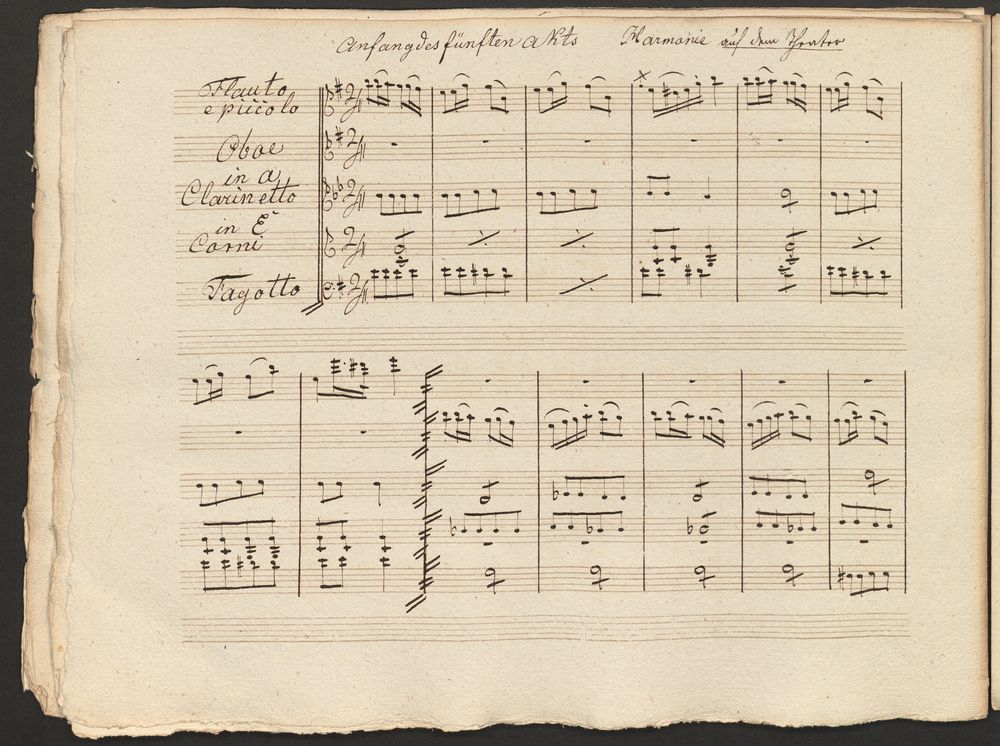 Anfang des fünften Akts Harmonie auf dem Theater
Flauto
e piccolo
Oboe
in a
Clarinetto
in E
Corni
Fagotto